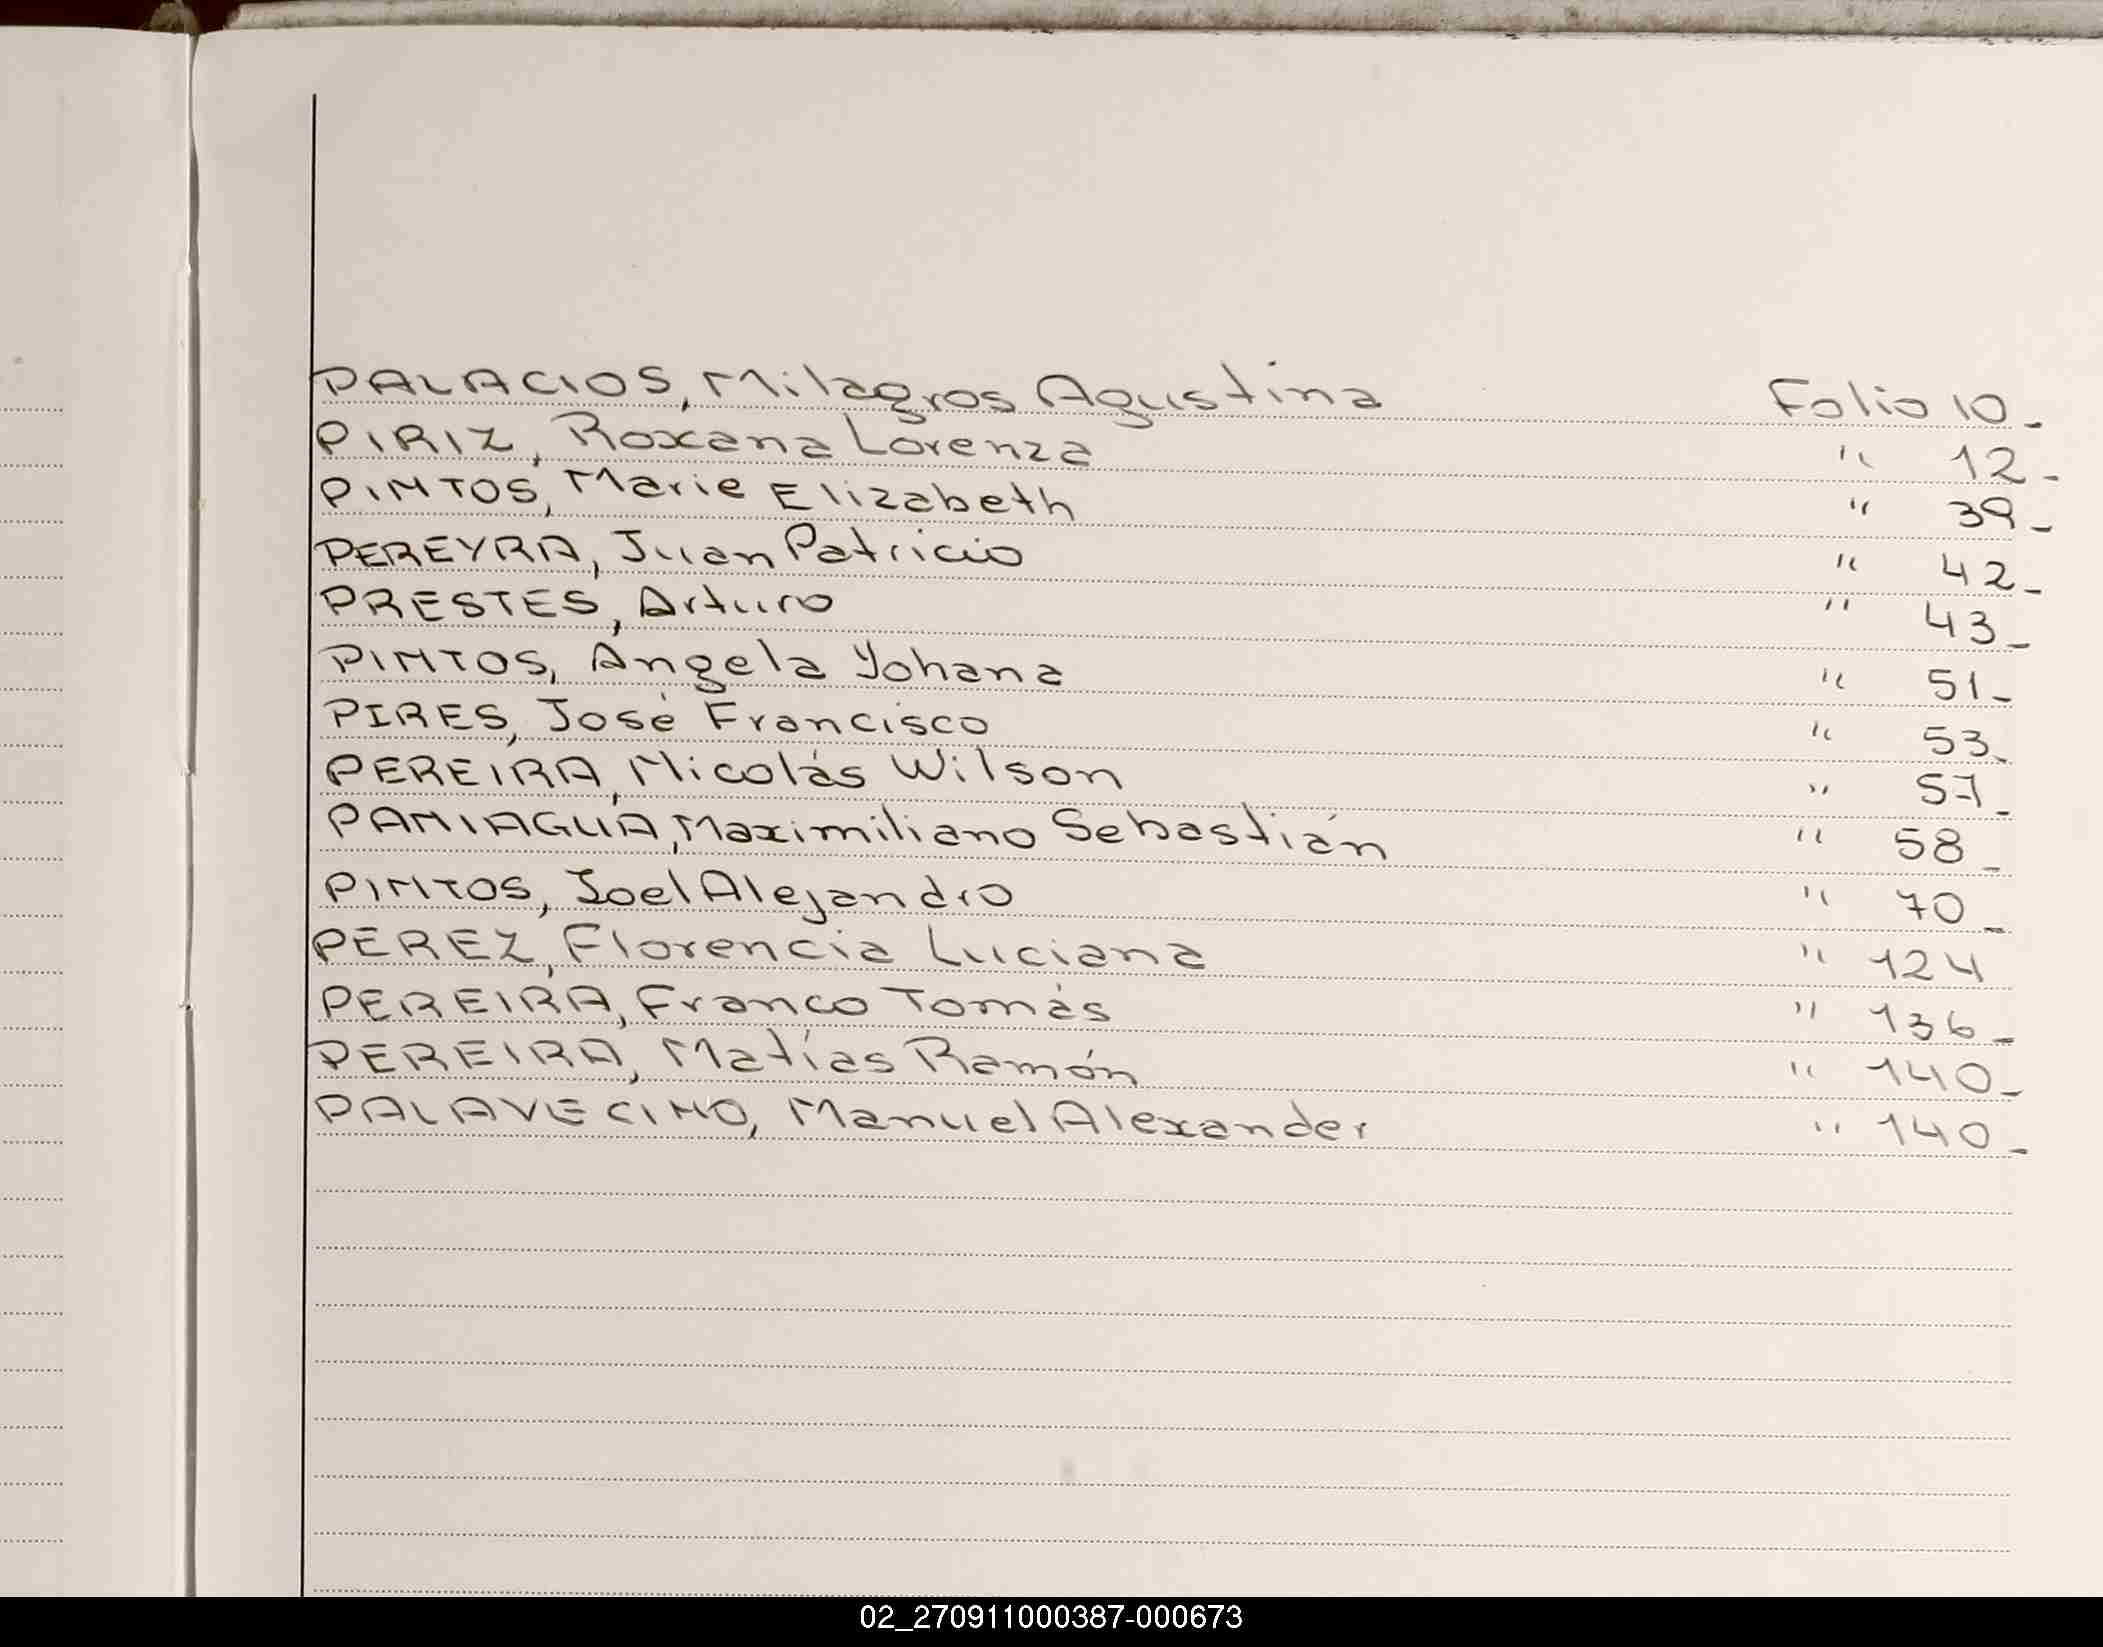 PALACIOS, Milagros Agustina Folio 10_
PIRIZ, Roxana Lorenza " 12_
PINTOS, Marie Elizabeth " 39_
PEREYRA, Juan Patricio " 42_
PRESTES, Arturo " 43_
PINTOS, Angela Yohana " 51_
PIRES, José Francisco " 53_
PEREIRA, Nicolás Wilson " 57_
PANIAGUA, Maximiliano Sebastián " 58_
PINTOS, Joel Alejandro " 70_
PEREZ, Florencia Luciana " 124
PEREIRA, Franco Tomás " 136_
PEREIRA, Matías Ramón " 140_
PALAVECINO, Manuel Alexander " 140_
02_270911000387-000673